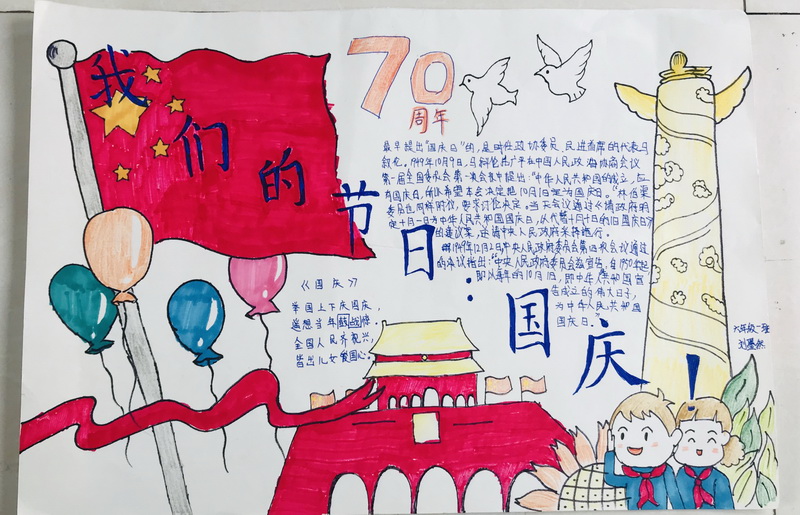 我们的节日:国庆!
70
周年
最早提出"国庆日"的,是时任政协委员、民进首席的代表马
叙伦。1949年10月9日,马叙伦
在中国人民政
协商会议
第一届全国委员会第一次会
中提出:"中华人民共和国的成立,应
有国庆日,所以希望本会决定把10月1日定为国庆日。"林伯渠
委员也同样附议,要求讨论决定。当天会议通过《请政府明
定十月一日为中华人民共和国国庆日,以代替十月十日的旧国庆日》
的建议案,送请中央人民政府采择施行。
1949年12月2日中央人民政府委员会第四次会议通过
的决议指出:"中央人民政府委员会
宣告:自1950年起
即以每年的10月1日,即中华人民共和国宣
告成立的伟大日子,
为中华人民共和国
国庆日。"
《国庆》
举国上下庆国庆,
遥想当年
全国人民齐祝兴,
皆出儿女爱国心。
六年级一班